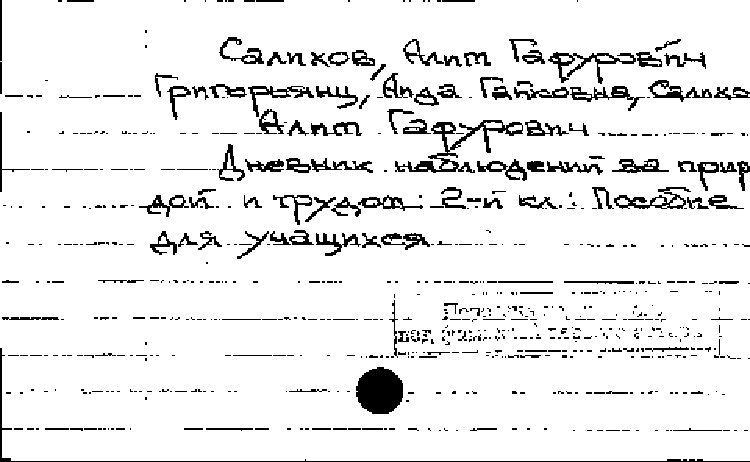 Салихов, Алит Гафурович
Григорьянц, Аида Гайковна, Салихо
Алит Гафурович
Дневник наблюдений за прир
дой и трудом: 2-й кл.: Пособие
для учащихся